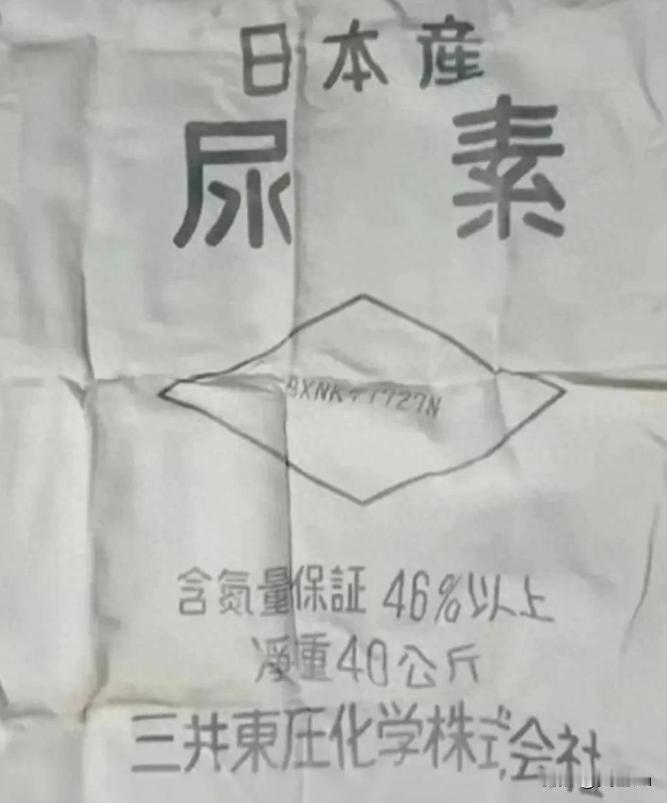 日本産
尿素
含氮量保証 46%以上
淨重40公斤
三井東圧化学株式会社